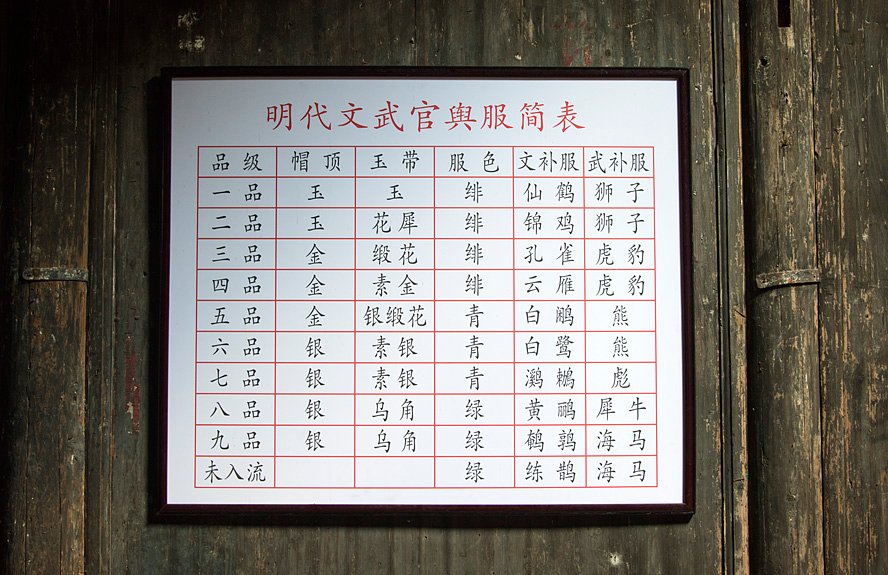 明代文武官舆服简表
品级 帽顶 玉带 服色 文补服 武补服
一品 玉 玉 绯 仙鹤 狮子
二品 玉 花犀 绯 锦鸡 狮子
三品 金 缎花 绯 孔雀 虎豹
四品 金 素金 绯 云雁 虎豹
五品 金 银缎花 青 白鹇 熊
六品 银 素银 青 白鹭 熊
七品 银 素银 青 㶉鶒 彪
八品 银 乌角 绿 黄鹂 犀牛
九品 银 乌角 绿 鹌鹑 海马
未入流 绿 练鹊 海马